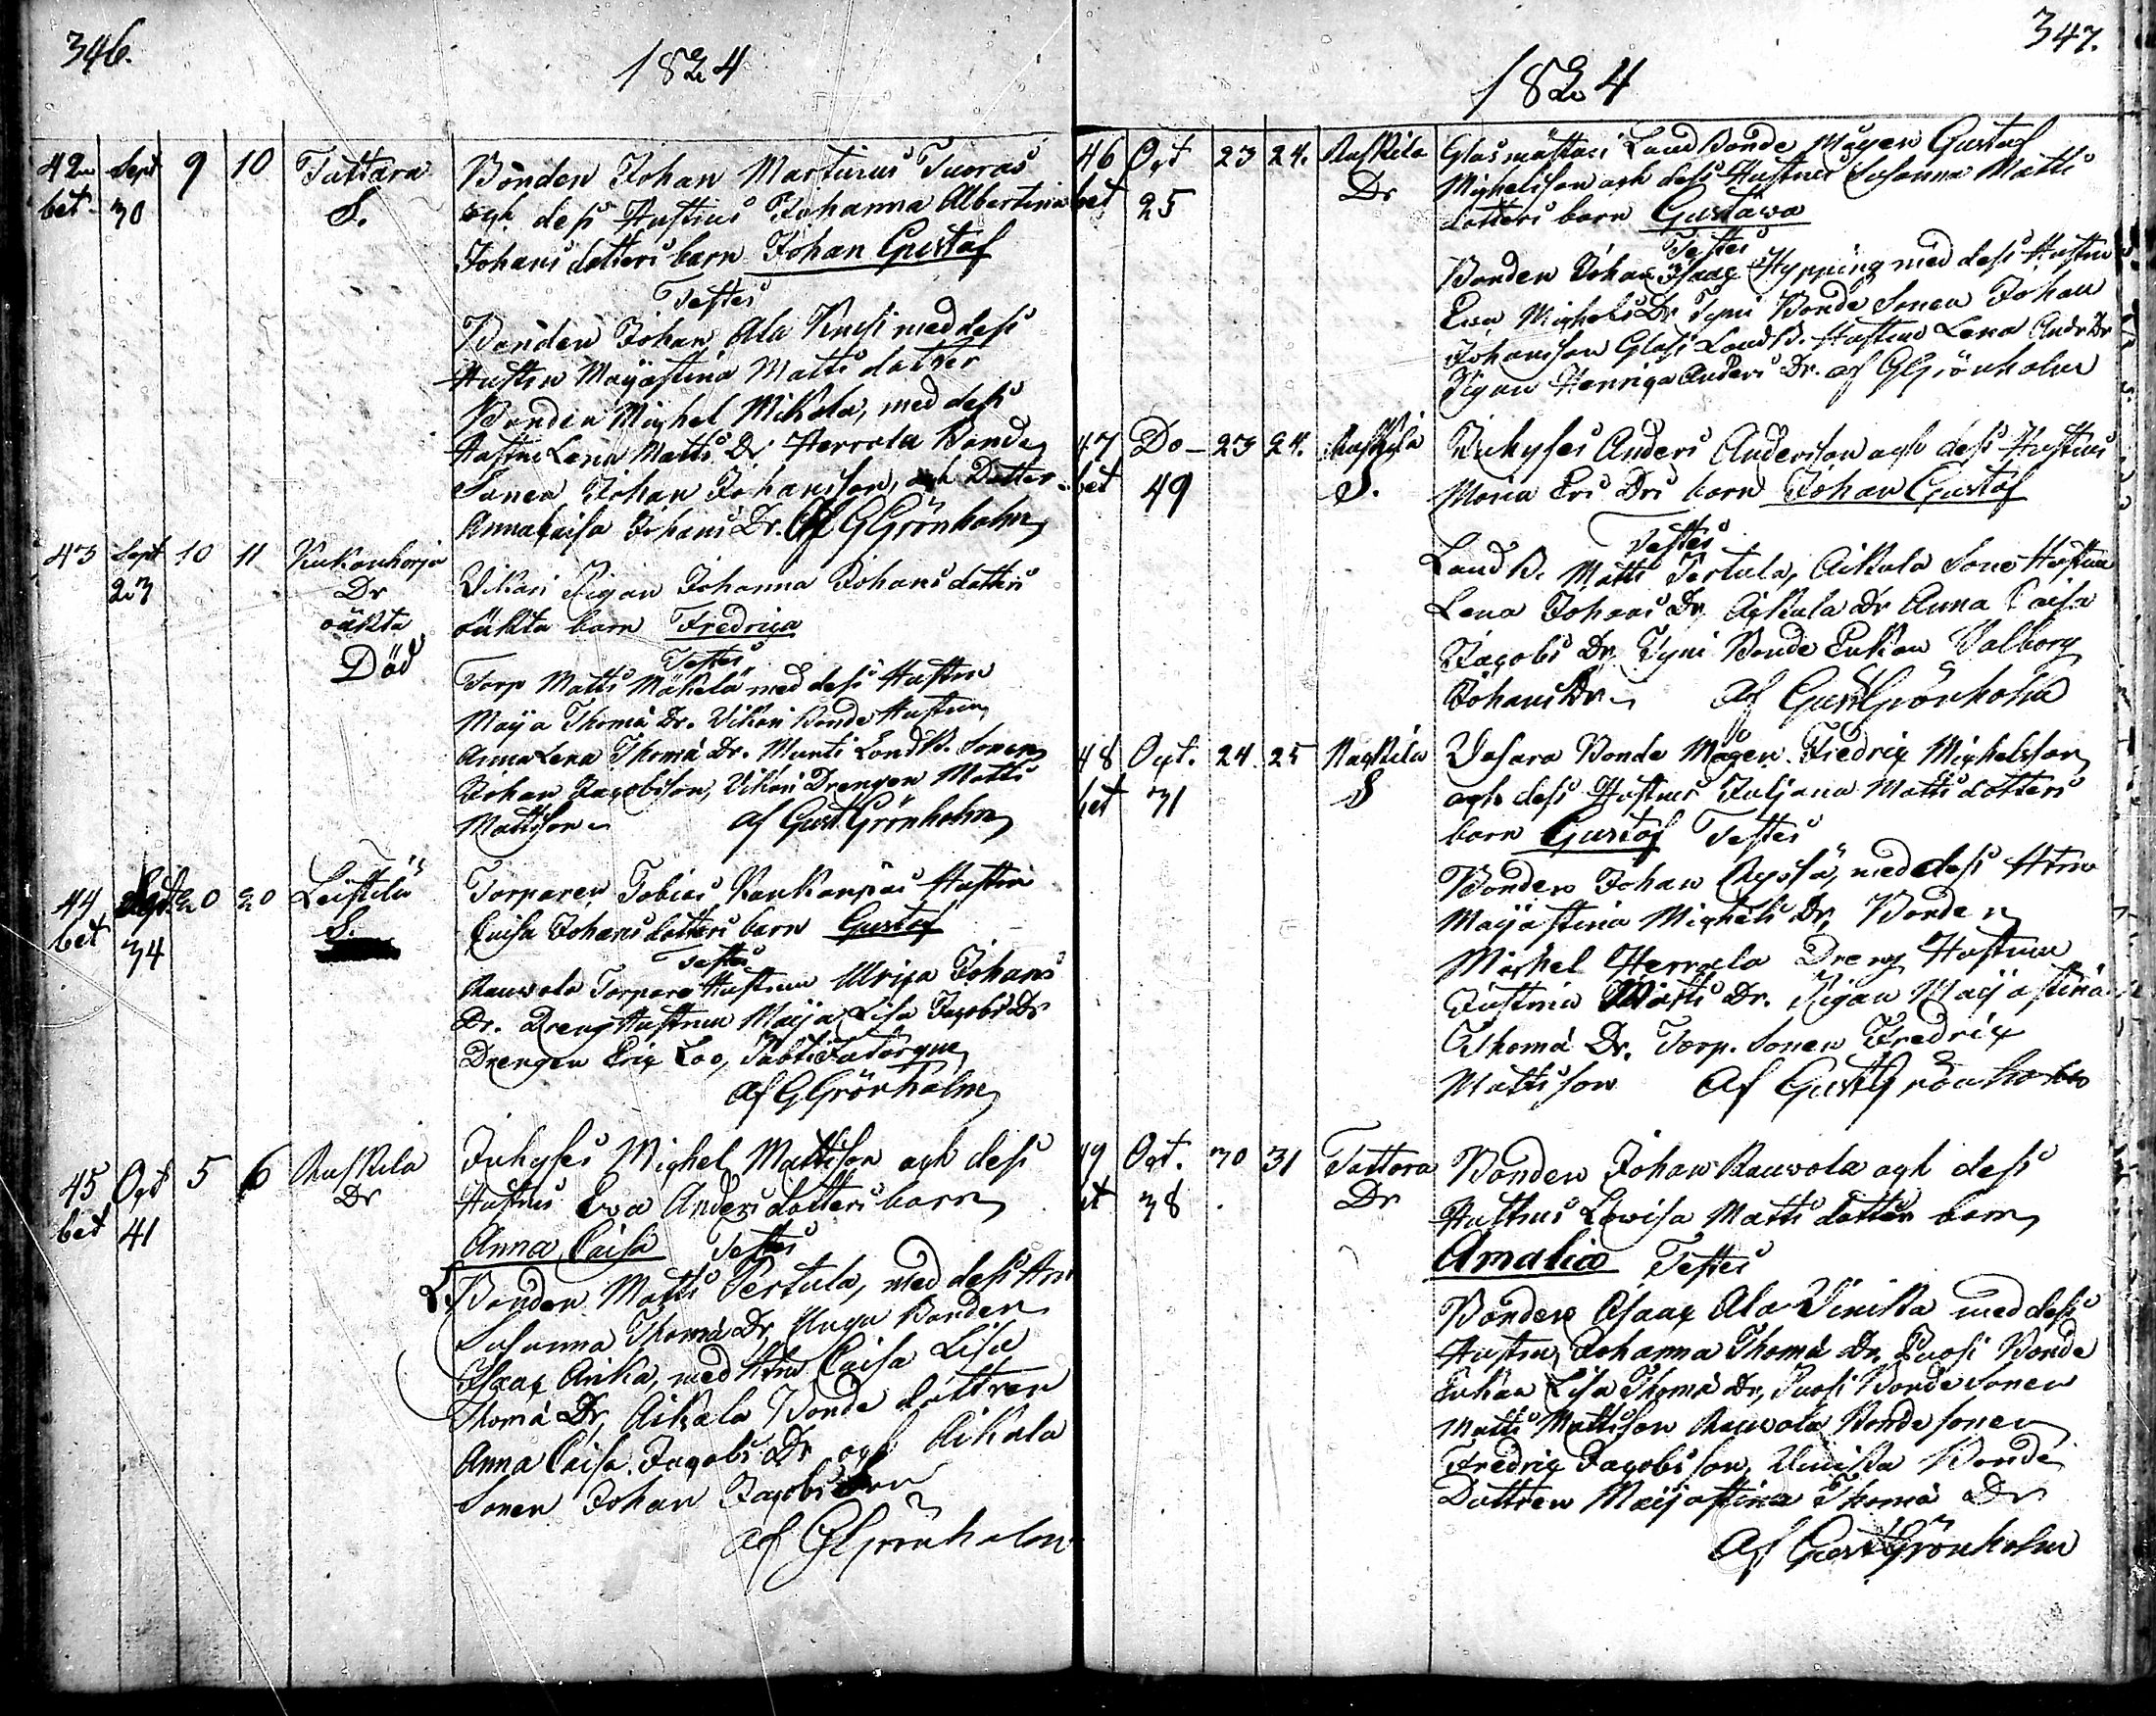 346.
1824
42 Sept 9 10 Tuttara Bonden Johan Marturus Tuoras
bet 30 S. och dess Hustrus Johanna Albertina
Johans dotters barn Johan Gustaf
Testes
Bonden Johan Ala Knusi med dess
Hustru Maijastina Matts dotter
Bonden Michel Mikola, med dess
Hustru Lena Matts Dr Herrola Bonde
Sonen Johan Johansson, och Dotter
Anna Caisa Johans Dr. Af G Grönholm
43 Sept 10 11 Kukonharja Vikari Pigan Johanna Johans dotters
23 Dr oäkta barn Fredrica
oäkta
Död
Testes
Torp Matts Mäkelä med dess Hustru
Maija Thomä Dr. Vikari Bonde Hustrun
Anna Lena Thomä Dr. Munti Land B. Sonen
Johan Jacobsson, Vikari Drengen Matts
Mattsson af Gust Grönholm
44 Sept 20 20 Leistilä Torparen Tobias Kankanpäs Hustru
bet 34 S. Caisa Johans dotters barn Gustaf
Testes
Rauvola Torpare Hustrun Ulrica Johans
Dr. Dreng Hustrun Maija Lisa Jacobs Dr
Drengen Eric Loo,
af G Grönholm
45 Oct 5 6 Raskila Inhyses Michel Mattsson och dess
bet 41 Dr Hustrus Eva Anders dotters barn
Anna Caisa Testes
L. Bonden Matts Pertula, med dess Hru
Susanna Thomä Dr, Unga Bonden
Isaac Anka, med Hru Caisa Lisa
Thomä Dr, Aikala Bonde dottren
Anna Caisa Jacobs Dr och Aikala
Sonen Johan Jacobsson
af G Grönholm
347.
1824
46 Oct 23 24. Raskila Glasmästari Land Bonde Mågen Gustaf
bet 25 Dr Michelsson och dess Hustrus Susanna Matts
dotters barn Gustava
Testes
Bonden Johan Isaac Hypping med dess Hustru
Eva Michels Dr Tyni Bonde Sonen Johan
Johansson Glasi Land B. Hustrun Lena Andr Dr
Pigan Henrica Anders Dr. af G Grönholm
47 Do 23 24. Raskila Inhyses Anders Andersson och dess Hustrus
bet 49 S. Maria Ers Drs barn Johan Gustaf
Testes
Land B. Matts Pertula, Aikala Sone Hustrun
Lena Johans Dr, Aikala Dr Anna Caisa
Jacobs Dr, Tyni Bonde Enkan Valborg
Johans Dr af Gust Grönholm
48 Oct. 24 25 Raskila Vasara Bonde Mågen Fredric Michelsson
bet 31 S och dess Hustrus Juljana Matts dotters
barn Gustaf Testes
Bonden Johan med dess Hru
Maijastina Michels Dr, Bonden
Michel Herrala Dreng Hustrun
Justina Matts Dr. Pigan Maijastina
Thomä Dr. Torp. Sonen Fredric
Mattsson Af Gust Grönholm
49 Oct. 30 31 Tattara Bonden Johan Rauvola och dess
bet 38 Dr Hustrus Lovisa Matts dotters barn
Amalia Testes
Bonden Isaac Ala Vinikka med dess
Hustru Johanna Thomä Dr, Puosi Bonde
Enkan Lisa Thomä Dr, Puosi Bonde Sonen
Matts Mattsson Rauvola Bonde sonen
Fredric Jacobsson, Vinikka Bonde
Dottren Maijastina Thomä Dr
Af Gust Grönholm